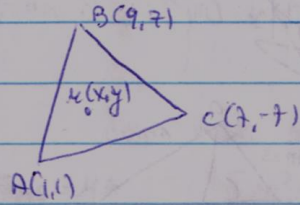 B(9,7)
(x,y)
C(7,-7)
A(1,1)